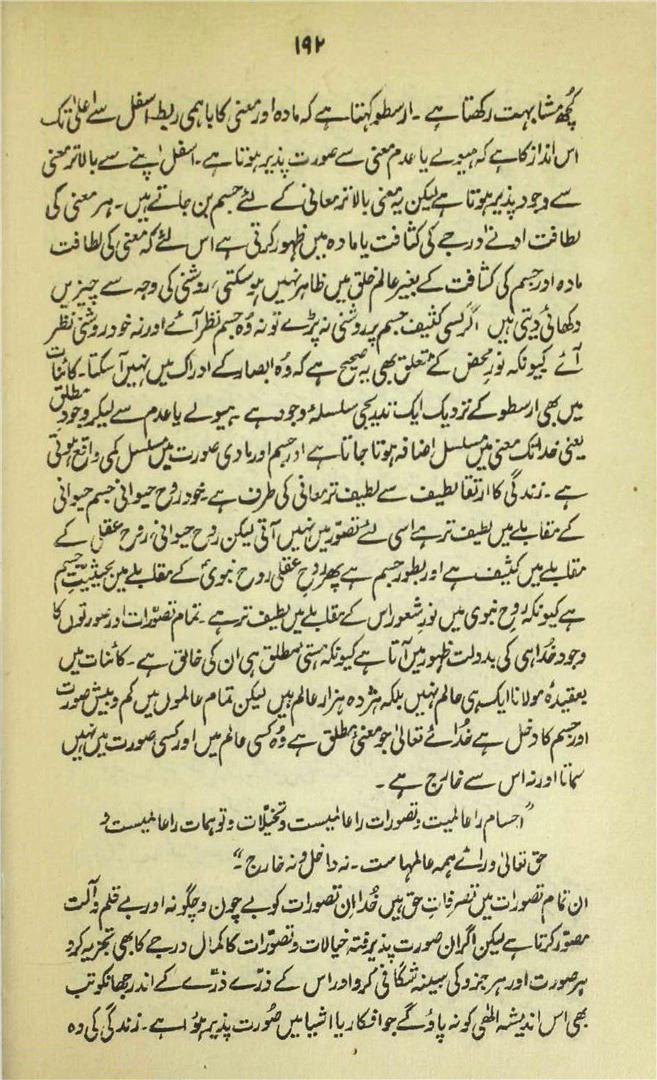 ۱۹۲
کچھ مشابہت رکھتا ہے ۔ ارسطو کہتا ہے کہ مادہ اور معنی کا باہمی ربط اسفل سے اعلیٰ تک
اس انداز کا ہے کہ ہیولے یا عدم معنی سے صورت پذیر ہوتا ہے ۔ اسفل اپنے سے بالاتر معنی
سے وجود پذیر ہوتا ہے لیکن یہ معنی بالاتر معانی کے لئے جسم بن جاتے ہیں ۔ ہر معنی کی
لطافت ادنےٰ درجے کی کثافت یا مادہ میں ظہور کرتی ہے اس لئے کہ معنی کی لطافت
مادہ اور جسم کی کثافت کے بغیر عالم خلق میں ظاہر نہیں ہو سکتی ، روشنی کی وجہ سے چیزیں
دکھائی دیتی ہیں اگر کسی کثیف جسم پر روشنی نہ پڑے تو نہ وُہ جسم نظر آئے اور نہ خود روشنی نظر
آئے کیونکہ نورِ محض کے متعلق بھی یہ صحیح ہے کہ وُہ ابصار کے ادراک میں نہیں آ سکتا ۔ کائنات
میں بھی ارسطو کے نزدیک ایک تدریجی سلسلۂ وجود ہے ۔ ہیولے یا عدم سے لیکر وجودِ مطلق
یعنی خدا تک معنی میں مسلسل اضافہ ہوتا جاتا ہے اور جسم اور مادی صورت میں مسلسل کمی واقع ہوتی
ہے ۔ زندگی کا ارتقا لطیف سے لطیف تر معانی کی طرف ہے ۔ خود روح حیوانی جسم حیوانی
کے مقابلے میں لطیف تر ہے اسی لئے تصوّر میں نہیں آتی لیکن روح حیوانی ، روح عقلی کے
مقابلے میں کثیف ہے اور بطور جسم ہے پھر روحِ عقلی روح نبوی کے مقابلے میں بحیثیت جسم
ہے کیونکہ روح نبوی میں نورِ شعور اس کے مقابلے میں لطیف تر ہے ۔ تمام تصوّرات اور صورتوں کا
وجود خُدا ہی کی بدولت ظہور میں آتا ہے کیونکہ ہستی مطلق ہی ان کی خالق ہے ۔ کائنات میں
بعقیدۂ مولانا ایک ہی عالم نہیں بلکہ ہژدہ ہزار عالم ہیں لیکن تمام عالموں میں کم و بیش صورت
اور جسم کا دخل ہے خُدائے تعالیٰ جو معنیٔ مطلق ہے وُہ کسی عالم میں اور کسی صورت میں نہیں
سماتا اور نہ اس سے خارج ہے ۔
”اجسام را عالمیت و تصورات را عالمیست و تخیلات و توہمات را عالمیست و
حق تعالیٰ ورائے ہمہ عالمہا ست ۔ نہ داخل و نہ خارج ۔“
ان تمام تصورات میں تصرفاتِ حق ہیں خُدا ان تصورات کو بے چون و چگونہ اور بے قلم و آلت
مصوّر کرتا ہے لیکن اگر ان صورت پذیرفتہ خیالات و تصوّرات کا کمال درجے کا بھی تجزیہ کرو
ہر صورت اور ہر جزو کی سینہ شگافی کرو اور اس کے ذرّے ذرّے کے اندر جھانکو تب
بھی اس اندیشہ الٰھی کو نہ پاؤ گے جو افکار یا اشیا میں صُورت پذیر ہوُا ہے ۔ زندگی کی وہ